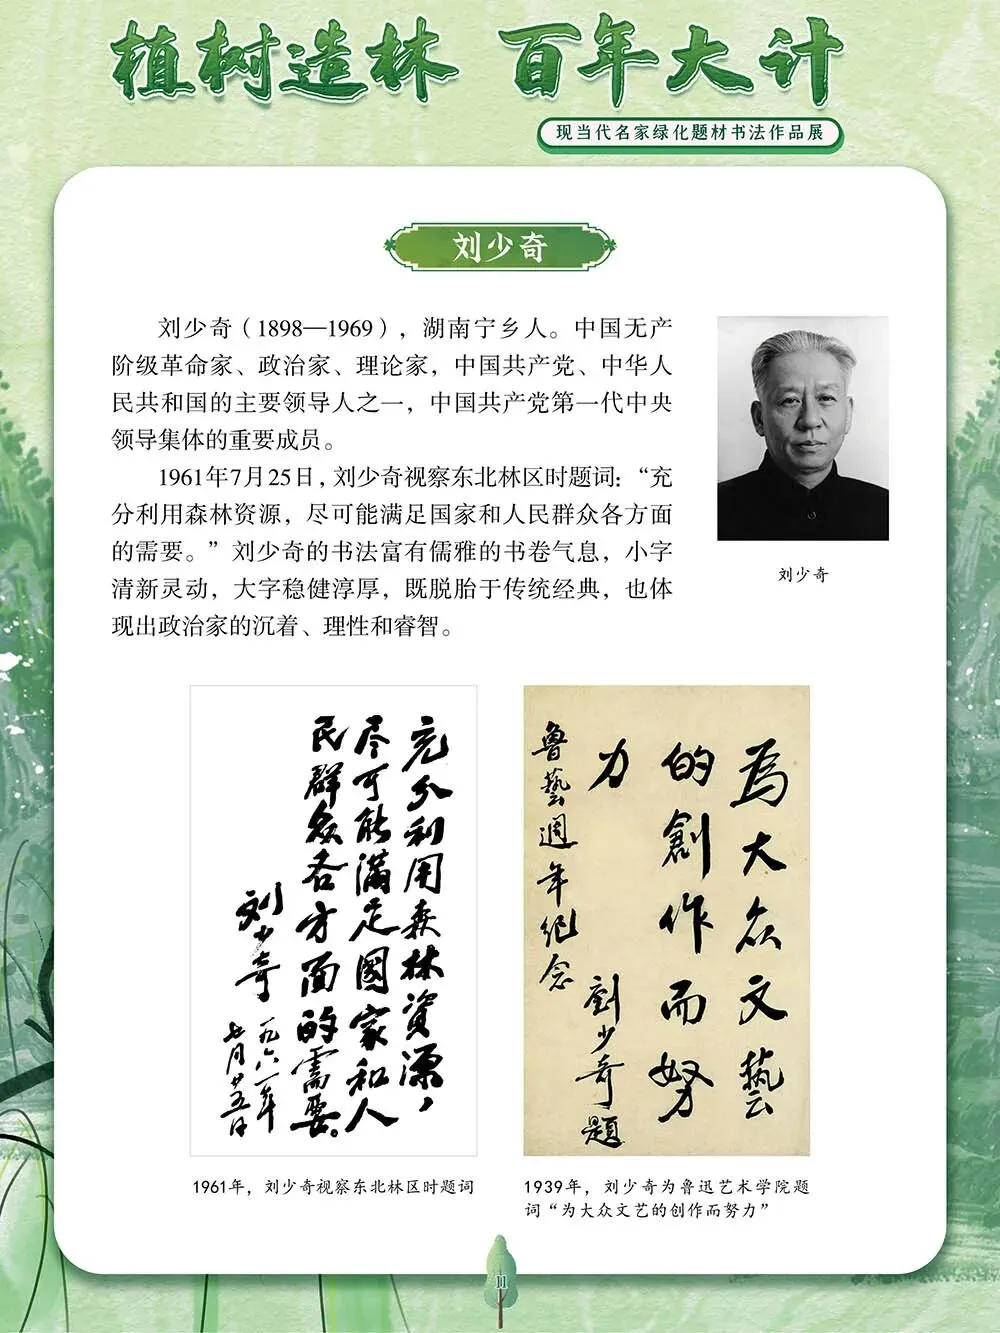 植树造林 百年大计
现当代名家绿化题材书法作品展
刘少奇
刘少奇（1898—1969），湖南宁乡人。中国无产
阶级革命家、政治家、理论家，中国共产党、中华人
民共和国的主要领导人之一，中国共产党第一代中央
领导集体的重要成员。
1961年7月25日，刘少奇视察东北林区时题词：“充
分利用森林资源，尽可能满足国家和人民群众各方面
的需要。”刘少奇的书法富有儒雅的书卷气息，小字
清新灵动，大字稳健淳厚，既脱胎于传统经典，也体
现出政治家的沉着、理性和睿智。
刘少奇
充分利用森林資源，
尽可能满足國家和人
民群众各方面的需要。
刘少奇
一九六一年
七月廿五日
為大众文藝
的創作而努
力
劉少奇題
魯藝週年紀念
1961年，刘少奇视察东北林区时题词
1939年，刘少奇为鲁迅艺术学院题
词“为大众文艺的创作而努力”
11